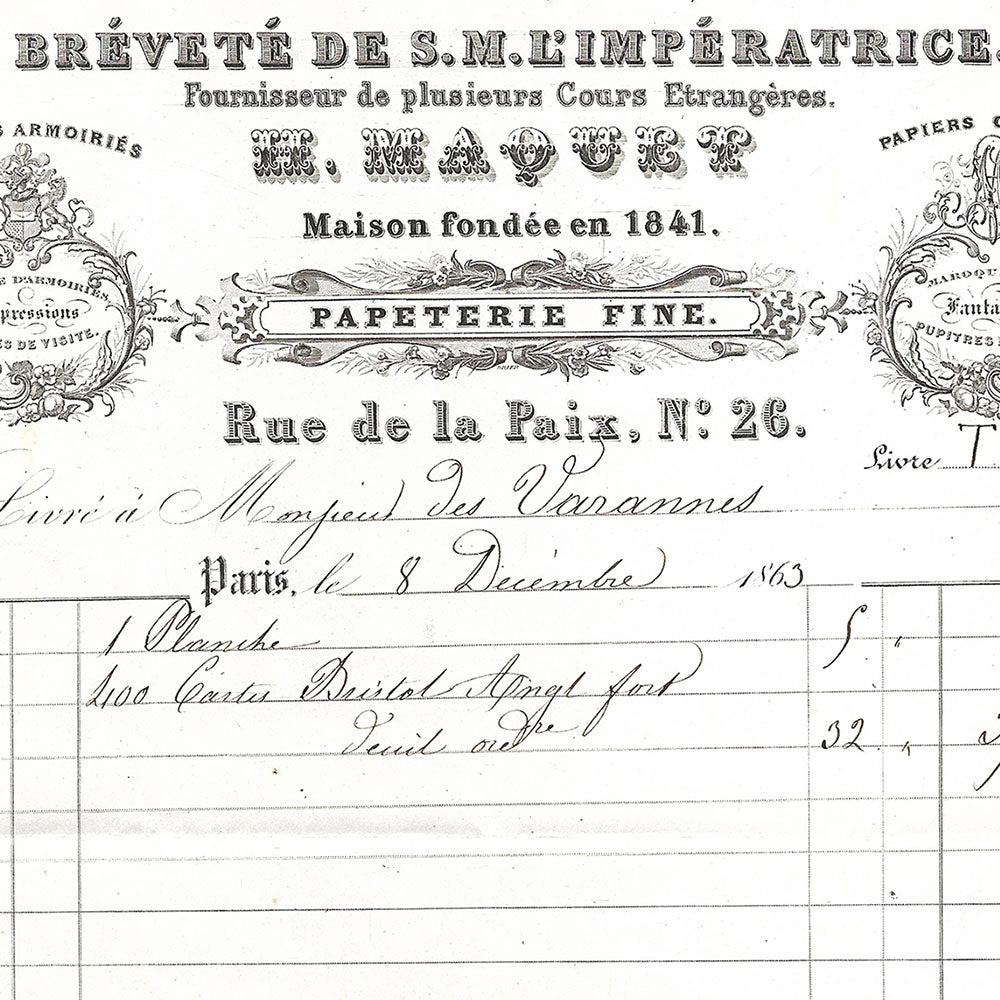 BRÉVETÉ DE S.M. L'IMPÉRATRICE.
Fournisseur de plusieurs Cours Etrangères.
S ARMOIRIÉS
PAPIERS
H. MAQUET
Maison fondée en 1841.
E D'ARMOIRIES
pressions
ES DE VISITE.
MAROQU
Fanta
PUPITRES
PAPETERIE FINE.
Rue de la Paix, No. 26.
Livre T
Livré à Monsieur des Varannes
Paris, le 8 Décembre 1863
1 Planche 5 "
400 Cartes Bristol Angl fort
deuil ordre 32 "